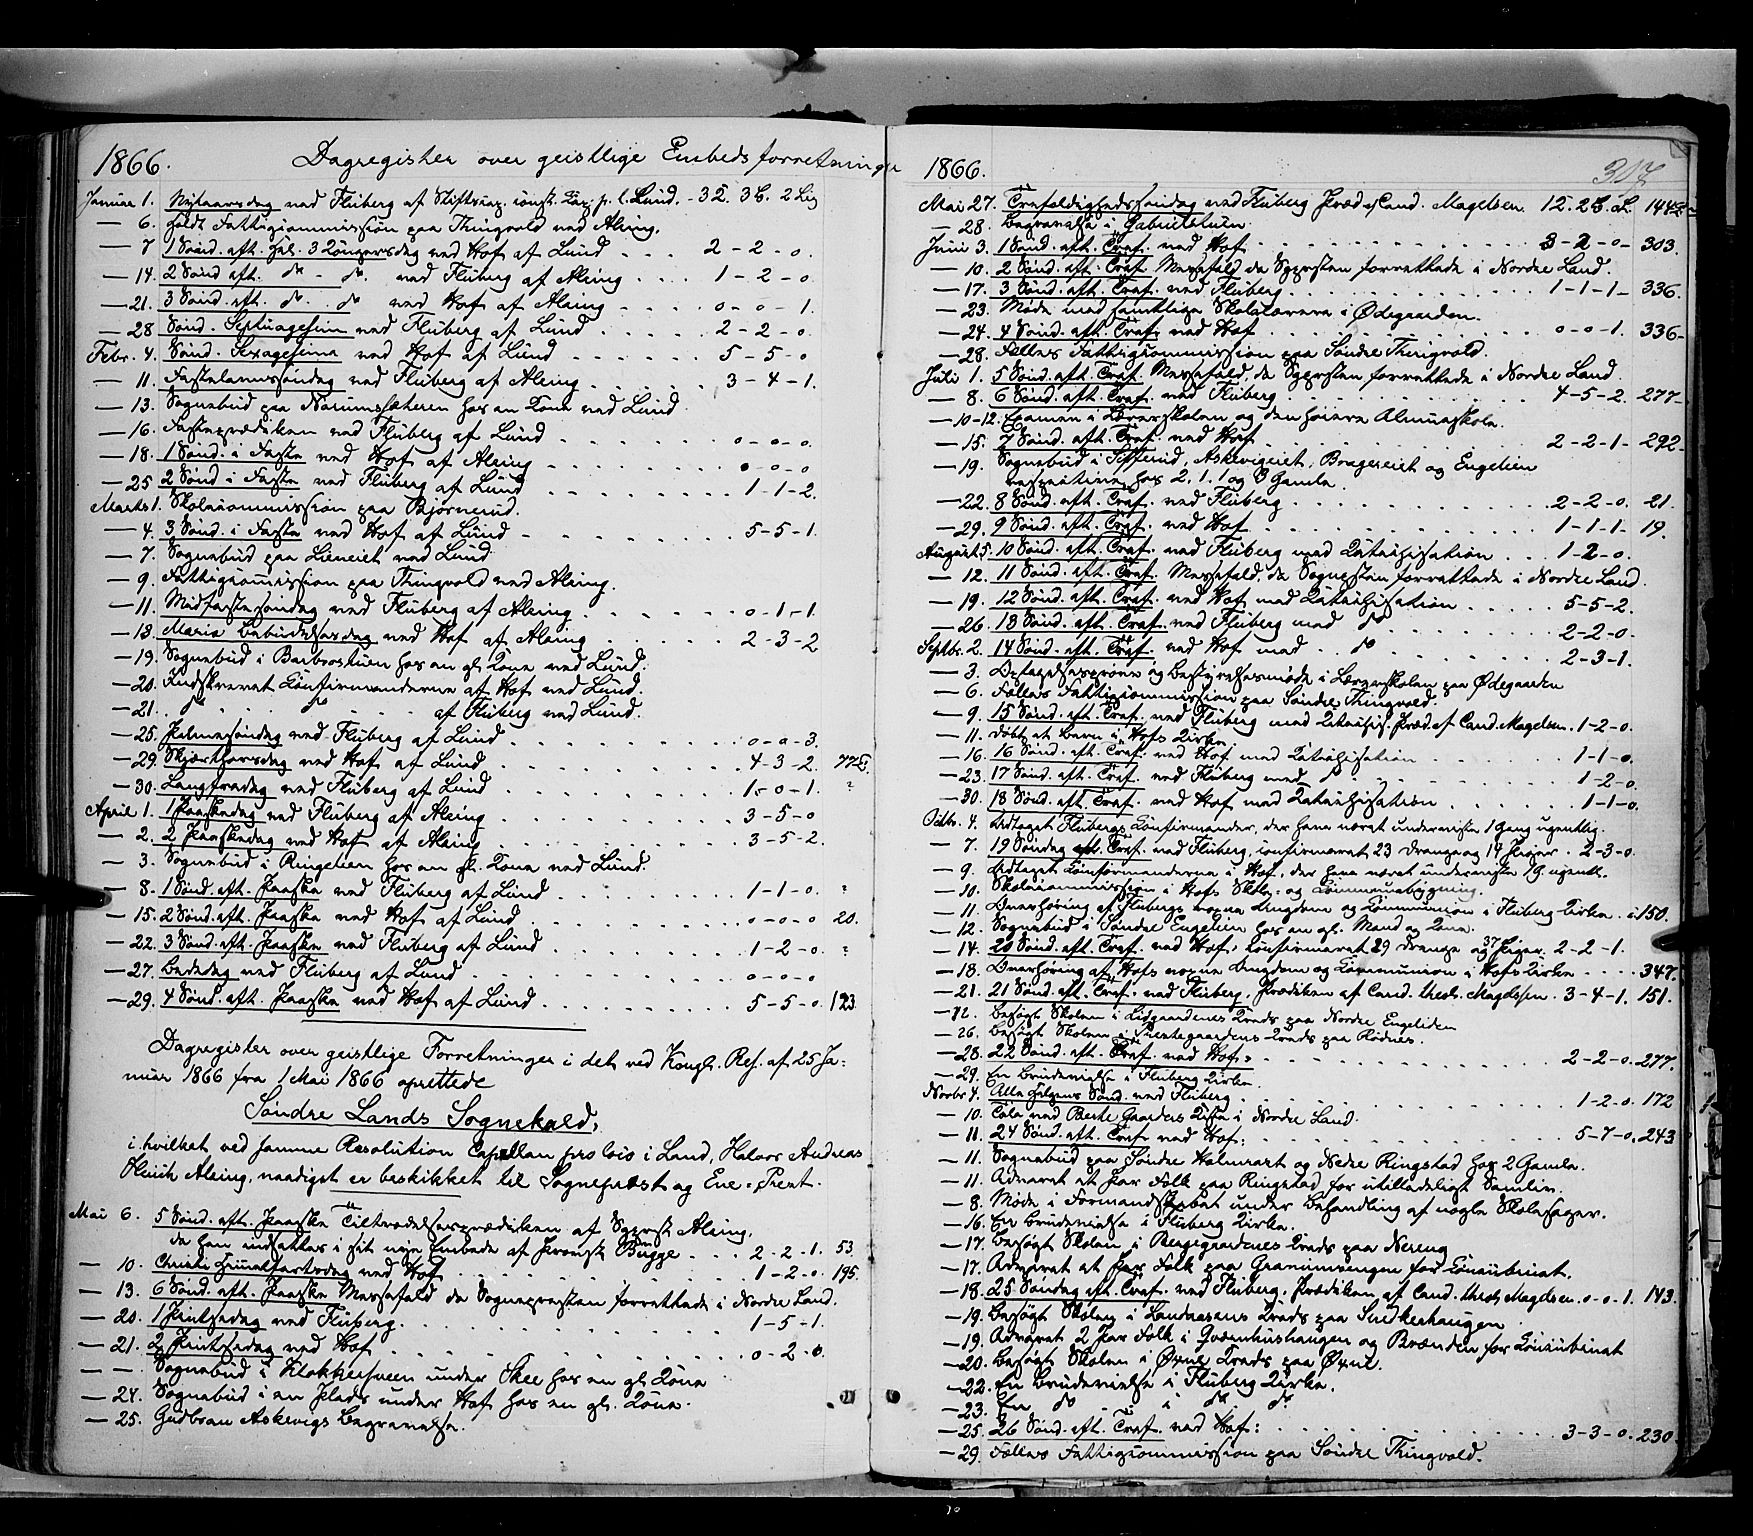 1866. Dagregister over geistlige Embedsforretninger
Januar 1. Nytaarsdag ved Fluberg af Stiftscap. const. Cap. p. l. Lund. - 3 2. 3 2 Lig
— 6. Holdt Fattigcommission paa Thingvold ved Alsing.
— 7 1 Sønd. eft. Hel. 3 Kongersdag ved Hof af Lund . . . 2-2-0.
— 14. 2 Sønd eft. do - do. ved Fluberg af Alsing . . . . 1-2-0
— 21. 3 Sønd. eft. do. do ved Hof af Alsing - . . . . 0-0-1.
— 28 Sønd. Septuagesima ved Fluberg af Lund . . . . . 2-2-0.
Febr. 4. Sønd. Sexagesima ved Hof af Lund . . . . . . 5-5-0
— 11. Fastelavnssøndag ved Fluberg af Alsing . . . . . 3-4-1.
— 13. Sognebud paa Narumsæteren hos en Kone ved Lund.
— 16. Fasteprædiken ved Fluberg af Lund . . . . . . 0-0-0.
— 18. 1 Sønd. i Faste ved Hof af Alsing . . . . . . 0-0-0
— 25 2 Sønd i Faste ved Fluberg af Lund . . . . . . 1-1-2.
Marts 1. Skolecommission paa Bjørnerud.
— 4. 3 Sønd. i Faste ved Hof af Lund - . . . . . . . 5-5-1.
— 7. Sognebud paa Lieneiet ved Lund.
— 9. Fattigcommission paa Thingvold ved Alsing.
— 11. Midfastesøndag ved Fluberg af Alsing . . . . . 0-1-1.
— 18. Maria Bebudelsesdag ved Hof af Alsing . . . . . 2-3-2
— 19. Sognebud i Barbrostuen hos en gl. Kone ved Lund.
— 20. Indskrevet Confirmanderne af Hof ved Lund.
— 21. do . . . do . . . . af Fluberg ved Lund.
— 25. Palmesøndag ved Fluberg af Lund . . . . . . . 0-0-3.
— 29. Skjærthorsdag ved Hof af Lund . . . . . . . . 4-3-2. 77 C.
— 30. Langfredag ved Fluberg af Lund . . . . . . . 1-0-1. ?
April 1. 1 Paaskedag ved Fluberg af Alsing . . . . . . 3-5-0
— 2. 2 Paaskedag ved Hof af Alsing . . . . . . . . 3-5-2.
— 3. Sognebud i Ringelien hos en gl. Kone ved Lund.
— 8. 1 Sønd. eft. Paaske ved Fluberg af Lund . . . . 1-1-0. ?
— 15. 2 Sønd. eft. Paaske ved Hof af Lund . . . . . 0-0-0 20.
— 22. 3 Sønd. eft. Paaske ved Fluberg af Lund . . . 1-2-0. ?
— 27. Bededag ved Fluberg af Lund . . . . . . . . 0-0-0
— 29. 4 Sønd. eft. Paaske ved Hof af Lund . . . . . 5-5-0. 193.
Dagregister over geistlige Forretninger i det ved Kongl. Res. af 25 Ja-
nuar 1866 fra 1 Mai 1866 oprettede
Søndre Lands Sognekald,
i hvilket ved samme Resolution Capellan pro loco i Land, Halvor Andreas
Ulrich Alsing, naadigst er beskikket til Sognepræst og Ene-Præst.
Mai 6. 5 Sønd. eft. Paaske Tiltrædelsesprædiken af Sgprst. Alsing,
da han indsattes i sit nye Embede af Provst Bugge . . . 2-2-1. 53.
— 10. Christi Himmelfartsdag ved Hof . . . . . . . . 1-2-0. 195.
— 13. 6 Sønd. eft. Paaske Messefald da Sognepræsten forrettede i Nordre Land.
— 20. 1 Pintsedag ved Fluberg. . . . . . . . . . 1-5-1.
— 21. 2 Pintsedag ved Hof . . . . . . . . . . 0-2-0.
— — Sognebud i Klokkersveen under Skee hos en gl. Kone
— 24. Sognebud i en Plads under Hof hos en gl. Kone.
— 25. Gudbran Askevigs Begravelse.
1866. 307
Mai 27. Trefoldighedssøndag ved Fluberg Præd. af Cand. Magelsen. 1 2. 2 L. 144
— 28. Begravelse i
Juni 3. 1 Sønd. eft. Tref. ved Hof . . . . . . . 3-2-0- 303.
— 10. 2 Sønd. eft. Tref. Messefald da Sgprsten forrettede i Nordre Land.
— 17. 3 Sønd. eft. Tref. ved Fluberg . . . . . . 1-1-1- 336.
— 23. Møde med samtlige Skolelærere i Ødegaarden.
— 24. 4 Sønd. eft. Tref. ved Hof . . . . . . 0-0-1. 336-
— 28. Fælles Fattigcommission paa Søndre Thingvold.
Juli 1. 5 Sønd. eft. Tref. Messefald, da Sgprsten forrettede i Nordre Land
— 8. 6 Sønd. eft. Tref. ved Fluberg . . . . . . 4-5-2. 277-
— 10-12. Examen i Lærerskolen og den høiere Almueskole.
— 15. 7 Sønd. eft. Tref. ved Hof . . . . . . . 2-2-1- 292-
— 19. Sognebud i Askevigeiet, Bragereiet og Engelien
respective hos 2, 1, 1 og 3 Gamle.
— 22. 8 Sønd. eft. Tref. ved Fluberg . . . . . . 2-2-0. 21.
— 29. 9 Sønd. eft. Tref. ved Hof . . . . . . 1-1-1- 19.
August 5. 10 Sønd. eft. Tref. ved Fluberg med Katechisation . . . 1-2-0.
— 12. 11 Sønd. eft. Tref. Messefald, da Sognpsten forrettede i Nordre Land.
— 19. 12 Sønd. eft. Tref. ved Hof med Katechisation . . . . . 5-5-2.
— 26. 13 Sønd. eft. Tref. ved Fluberg med do . . . . . 2-2-0.
Septbr. 2. 14 Sønd. eft. Tref. ved Hof med . . do . . . . . 2-3-1.
— 3. Optagelsesprøve og Bestyrelsesmøde i Lærerskolen paa Ødegaarden
— 6. Fælles Fattigcommission paa Søndre Thingvold.
— 9. 15 Sønd. eft. Tref. ved Fluberg med Katechis. Præd. af Cand. Magelsen. 1-2-0.
— 11. Døbt et Barn i Hofs Kirke.
— 16. 16 Sønd. eft. Tref. ved Hof med Katechisation . . . . 1-1-0.
— 23. 17 Sønd. eft. Tref. ved Fluberg med do . . . . . 1-2-0.
— 30. 18 Sønd. eft. Tref. ved Hof med Katechisation . . . . . 1-1-0.
Octbr. 4. Udtaget Flubergs Confirmander, der have været underviste 1 Gang ugentlig.
— 7. 19 Søndag eft. Tref. ved Fluberg, confirmeret 23 Drenge og 14 Piger. 2-3-0.
— 9. Udtaget Confirmanderne i Hof, der have været underviste 1 g. ugentl.
— 10. Skolecommission i Hofs Skole- og Communebygning.
— 11. Overhøring af Flubergs Ungdom og Communion i Fluberg Kirke . c. 150.
— 12. Sognebud i Søndre Engelien hos en gl. Mand og Kone.
— 14. 20 Sønd. eft. Tref. ved Hof, Confirmeret 29 Drenge og 37 Piger. 2-2-1.
— 18. Overhøring af Hofs Ungdom og Communion i Hofs Kirke . . . . 347.
— 21. 21 Sønd. eft. Tref. ved Fluberg, Prædiken af Cand. theol. Magelssen. 3-4-1. 151.
— 22. Besøgt Skolen i Lidgaardenes Kreds paa Nordre Engeliden
— 26. Besøgt Skolen i Kreds paa Rødnes.
— 28. 22 Sønd. eft. Tref. ved Hof: . . . . . . . . 2-2-0. 277.
— 29. En Brudevielse i Fluberg Kirke.
Novbr 4. Alle Helgens Sønd. ved Fluberg . . . . . . . . 1-2-0. 172
— 10. Tale ved Berte Gaarders Kiste i Nordre Land.
— 11. 24 Sønd. eft. Tref. ved Hof: . . . . . . . . 5-7-0. 243
— 11. Sognebud paa Søndre Halmrast og Nedre Ringstad hos 2 Gamle.
— 11. Advaret et Par Folk paa Ringstad for utilladeligt Samliv.
— 8. Møde i Formandskabet under Behandling af nogle Skolesager.
— 16. En Brudevielse i Fluberg Kirke.
— 17. Besøgt Skolen i Kreds paa Nereng
— 17. Advaret et Par Folk paa Granumsengen for Concubinat.
— 18. 25 Søndag eft. Tref. ved Fluberg, Prædiken af Cand. theol. Magelsen. 0-0-1. 143.
— 19. Besøgt Skolen i Landaasens Kreds paa Snedkerhaugen
— 19. Advaret 2 Par Folk i Qværnhushaugen og Brænden for Concubinat
— 20. Besøgt Skolen i Øxne Kreds paa Øxne.
— 22. En Brudevielse i Fluberg Kirke.
— 23. En do . . i do. do
— 25. 26 Sønd. eft. Tref. ved Hof: . . . . . . . . 3-3-0. 230.
— 29. Fælles Fattigcommission paa Søndre Thingvold.